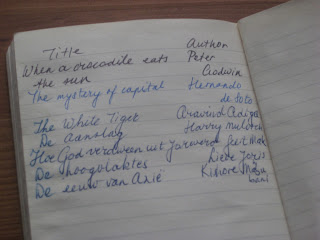 Title Author
When a crocodile eats Peter
the sun Godwin
The mystery of capital Hernando
de Soto
The White Tiger Aravind Adiga
De Aanslag Harry Mulisch
Hoe God verdween uit Jorwerd Geert Mak
De hoogvlaktes Lieve Joris
De eeuw van Azië Kishore Mahbu
bani